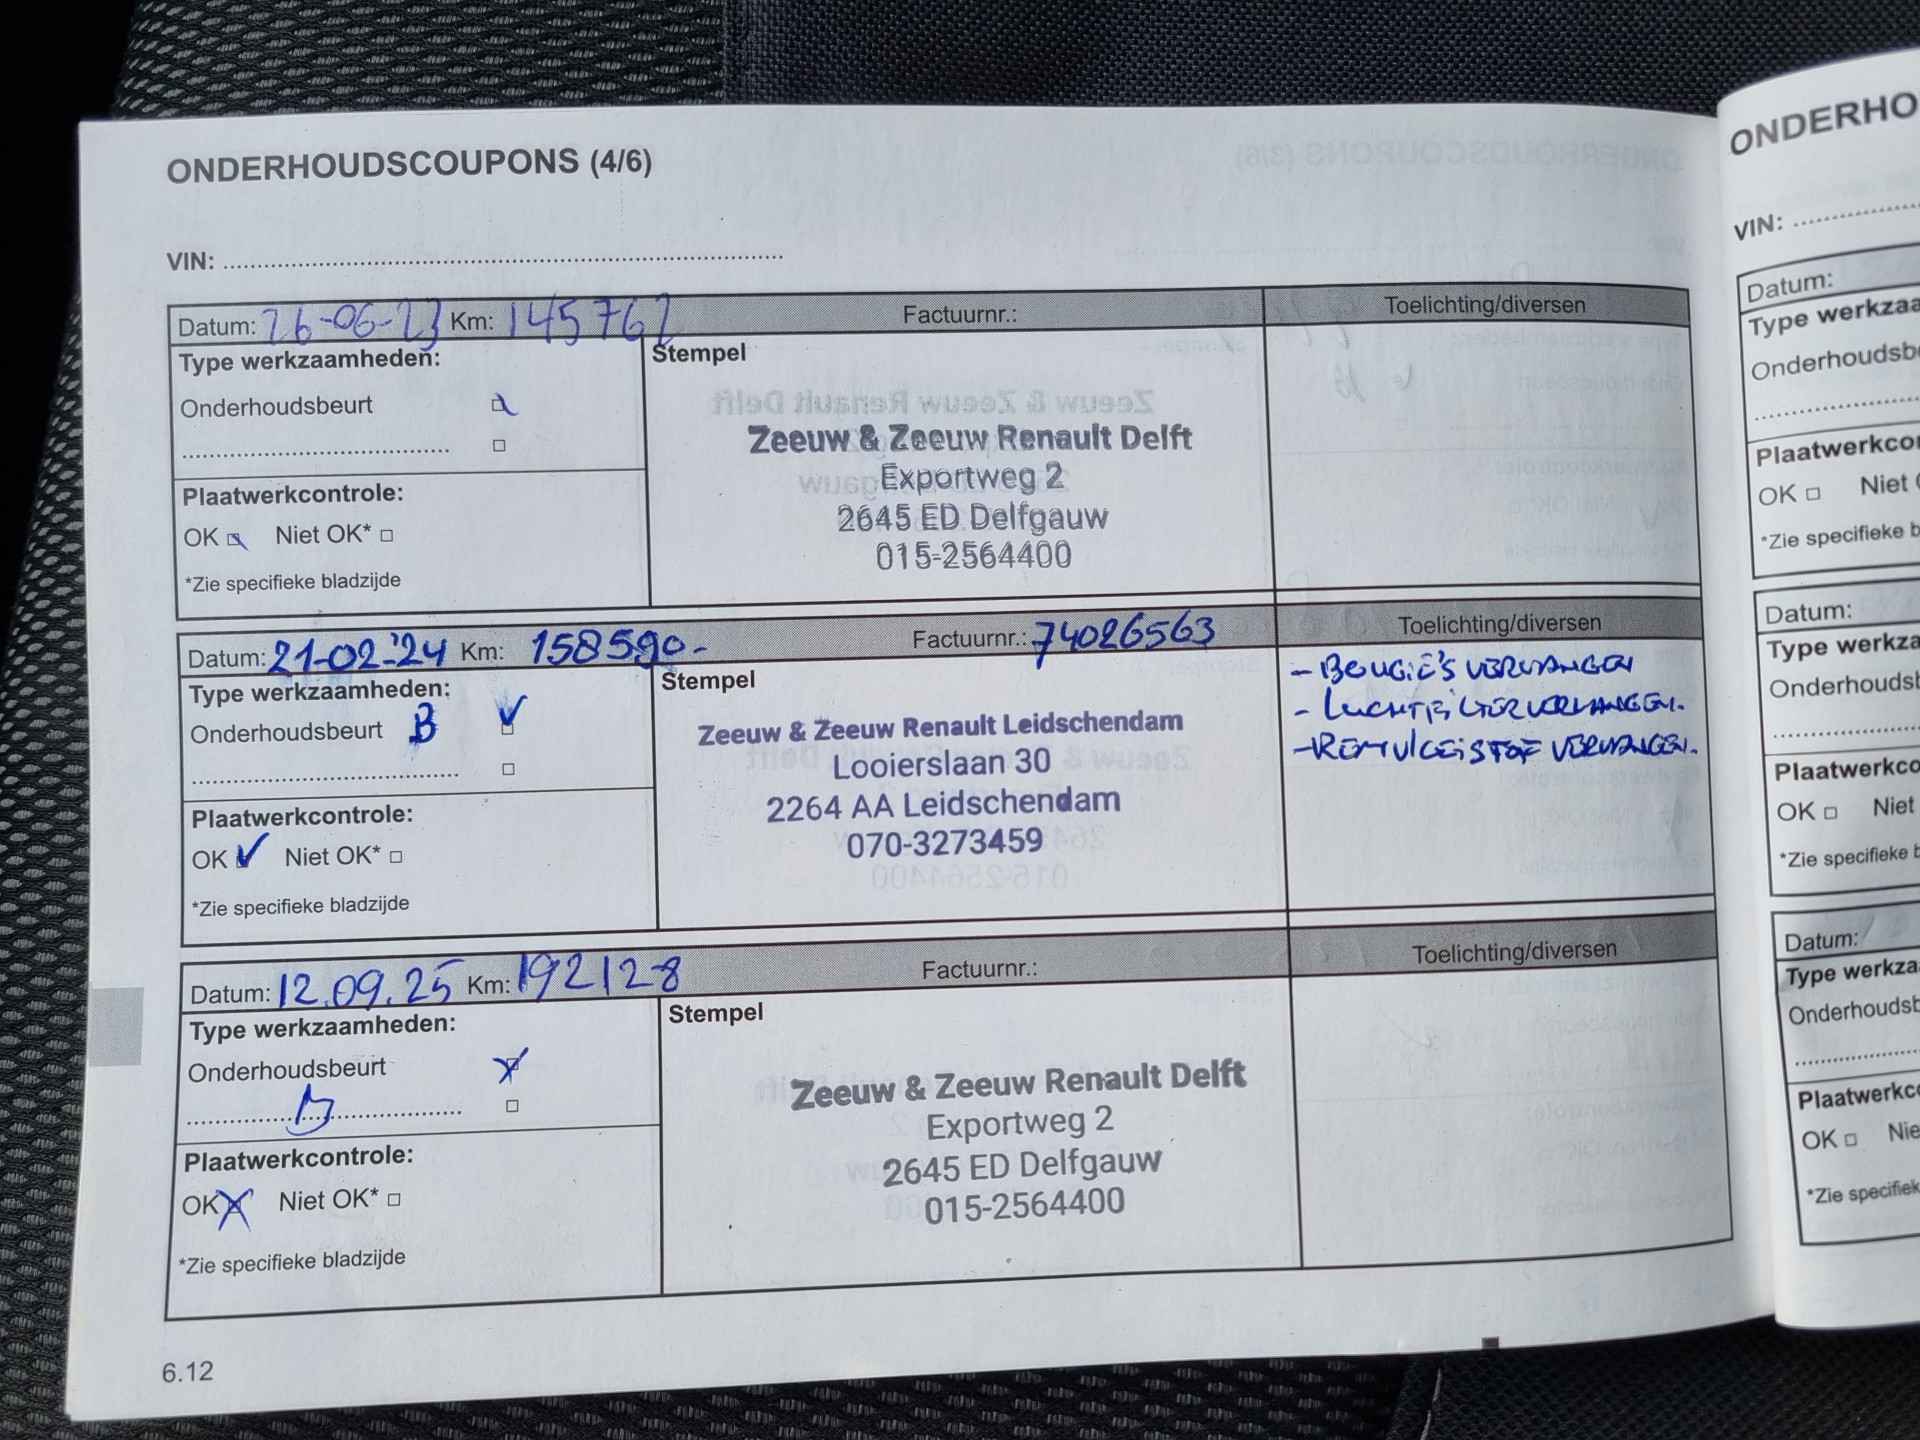 ONDERHOUDSCOUPONS (4/6)
VIN: ....................
Datum: 26-06-23 Km: 145762 Factuurnr.: Toelichting/diversen
Type werkzaamheden:
Onderhoudsbeurt
Plaatwerkcontrole:
OK Niet OK*
*Zie specifieke bladzijde
Stempel
Zeeuw & Zeeuw Renault Delft
Exportweg 2
2645 ED Delfgauw
015-2564400
Datum: 21-02-'24 Km: 158590.- Factuurnr.: 74026563 Toelichting/diversen
Type werkzaamheden:
Onderhoudsbeurt B
Plaatwerkcontrole:
OK Niet OK*
*Zie specifieke bladzijde
Stempel
Zeeuw & Zeeuw Renault Leidschendam
Looierslaan 30
2264 AA Leidschendam
070-3273459
- BOUGIE'S VERVANGEN
- LUCHTFILTER VERVANGEN.
- REMVLOEISTOF VERVANGEN.
Datum: 12.09.25 Km: 192128 Factuurnr.: Toelichting/diversen
Type werkzaamheden:
Onderhoudsbeurt
Plaatwerkcontrole:
OK Niet OK*
*Zie specifieke bladzijde
Stempel
Zeeuw & Zeeuw Renault Delft
Exportweg 2
2645 ED Delfgauw
015-2564400
6.12
ONDERHO
VIN: ..........
Datum:
Type werkzaa
Onderhoudsb
Plaatwerkcon
OK Niet
*Zie specifieke b
Datum:
Type werkza
Onderhoudsb
Plaatwerkco
OK Niet
*Zie specifieke
Datum:
Type werkza
Onderhoudsb
Plaatwerkc
OK Nie
*Zie specifiek